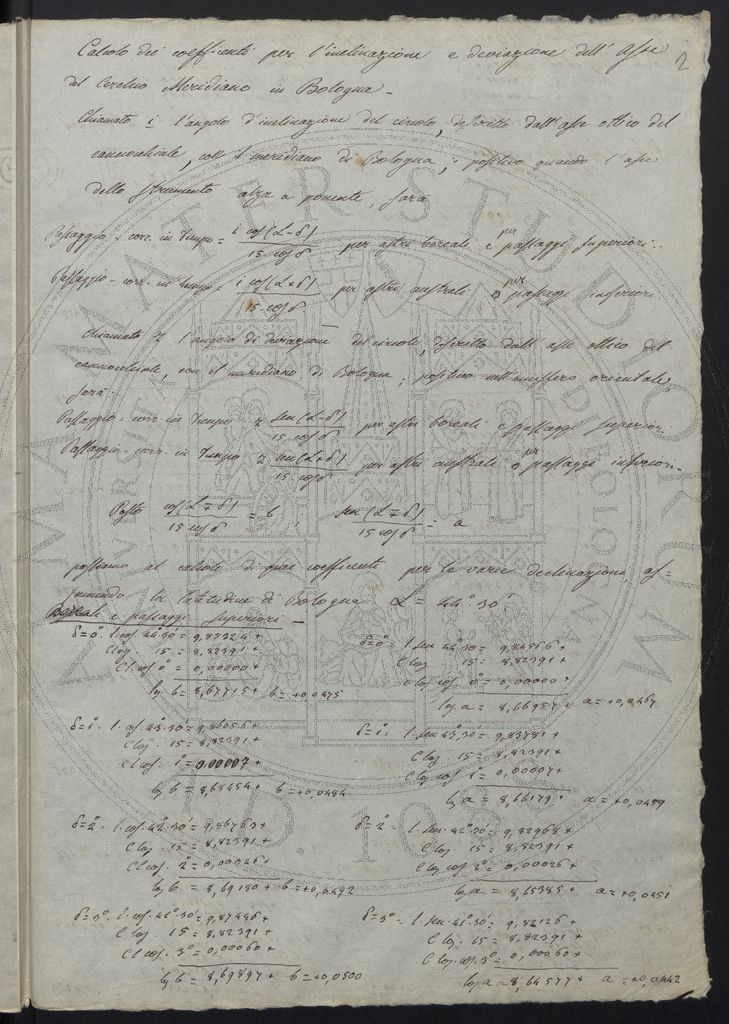 2
Calcolo dei coefficienti per l'inclinazione e deviazione dell'Asse
del Cerchio Meridiano in Bologna -
Chiamato i l'angolo d'inclinazione del circolo, descritto dall'asse ottico del
cannocchiale, coll meridiano di Bologna; positivo quando l'asse
dello strumento alza a ponente, sarà
Passaggio - corr. in tempo = i cos(L-δ) / 15 cos δ per astri boreali e per passaggi superiori.
Passaggio - corr. in tempo = i cos(L+δ) / 15 cos δ per astri australi o per passaggi inferiori
Chiamato z l'angolo di deviazione del circolo, descritto dall'asse ottico del
cannocchiale, con il meridiano di Bologna; positivo nell'emisfero orientale
sarà:
Passaggio - corr. in tempo z sen(L-δ) / 15 cos δ per astri boreali e passaggi superiori
Passaggio - corr. in tempo z sen(L+δ) / 15 cos δ per astri australi o passaggi inferiori.
Posto cos(L∓δ) / 15 cos δ = b, sen(L∓δ) / 15 cos δ = a
passiamo al calcolo di quei coefficienti per le varie declinazioni, as=
sumendo la latitudine di Bologna L = 44° 30'
Boreali e passaggi superiori -
δ=0°. l. cos. 44°.30' = 9,85324+ δ=0°. l. sen 44°.30' = 9,84566+
C log. 15 = 8,82391+ C log 15 = 8,82391+
C l cos 0° = 0,00000+ C log cos 0° = 0,00000+
log b = 8,67715+ b = +0,0475 log a = 8,66957+ a = +0,0467
δ=1°. l. cos. 43°.30' = 9,86056+ δ=1°. l. sen 43°.30' = 9,83781+
C log. 15 = 8,82391+ C log. 15 = 8,82391+
C l cos. 1° = 0,00007+ C log cos 1° = 0,00007+
log b = 8,68454+ b = +0,0484 log a = 8,66179+ a = +0,0459
δ=2°. l. cos. 42°.30' = 9,86763+ δ=2°. l. sen. 42°.30' = 9,82968+
C log. 15 = 8,82391+ C log. 15 = 8,82391+
C l cos. 2° = 0,00026+ C log cos 2° = 0,00026+
log b = 8,69180+ b = +0,0492 log a = 8,65385+ a = +0,0451
δ=3°. l. cos. 41°.30' = 9,87446+ δ=3°. l. sen 41°.30' = 9,82126+
C log. 15 = 8,82391+ C log. 15 = 8,82391+
C l cos. 3° = 0,00060+ C log. cos. 3° = 0,00060+
log b = 8,69897+ b = +0,0500 log a = 8,64577+ a = +0,0442
ALMA MATER STUDIORUM
A.D. 1088